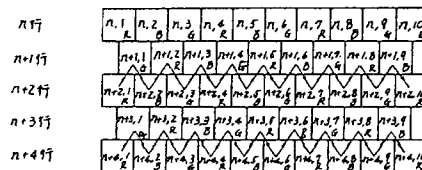 n行 n,1 R n,2 B n,3 G n,4 R n,5 B n,6 G n,7 R n,8 B n,9 G n,10 R
n+1行 n+1,1 G n+1,2 R n+1,3 B n+1,4 G n+1,5 R n+1,6 B n+1,7 G n+1,8 R n+1,9 B
n+2行 n+2,1 R n+2,2 B n+2,3 G n+2,4 R n+2,5 B n+2,6 G n+2,7 R n+2,8 B n+2,9 G n+2,10 R
n+3行 n+3,1 G n+3,2 R n+3,3 B n+3,4 G n+3,5 R n+3,6 B n+3,7 G n+3,8 R n+3,9 B
n+4行 n+4,1 R n+4,2 B n+4,3 G n+4,4 R n+4,5 B n+4,6 G n+4,7 R n+4,8 B n+4,9 G n+4,10 R